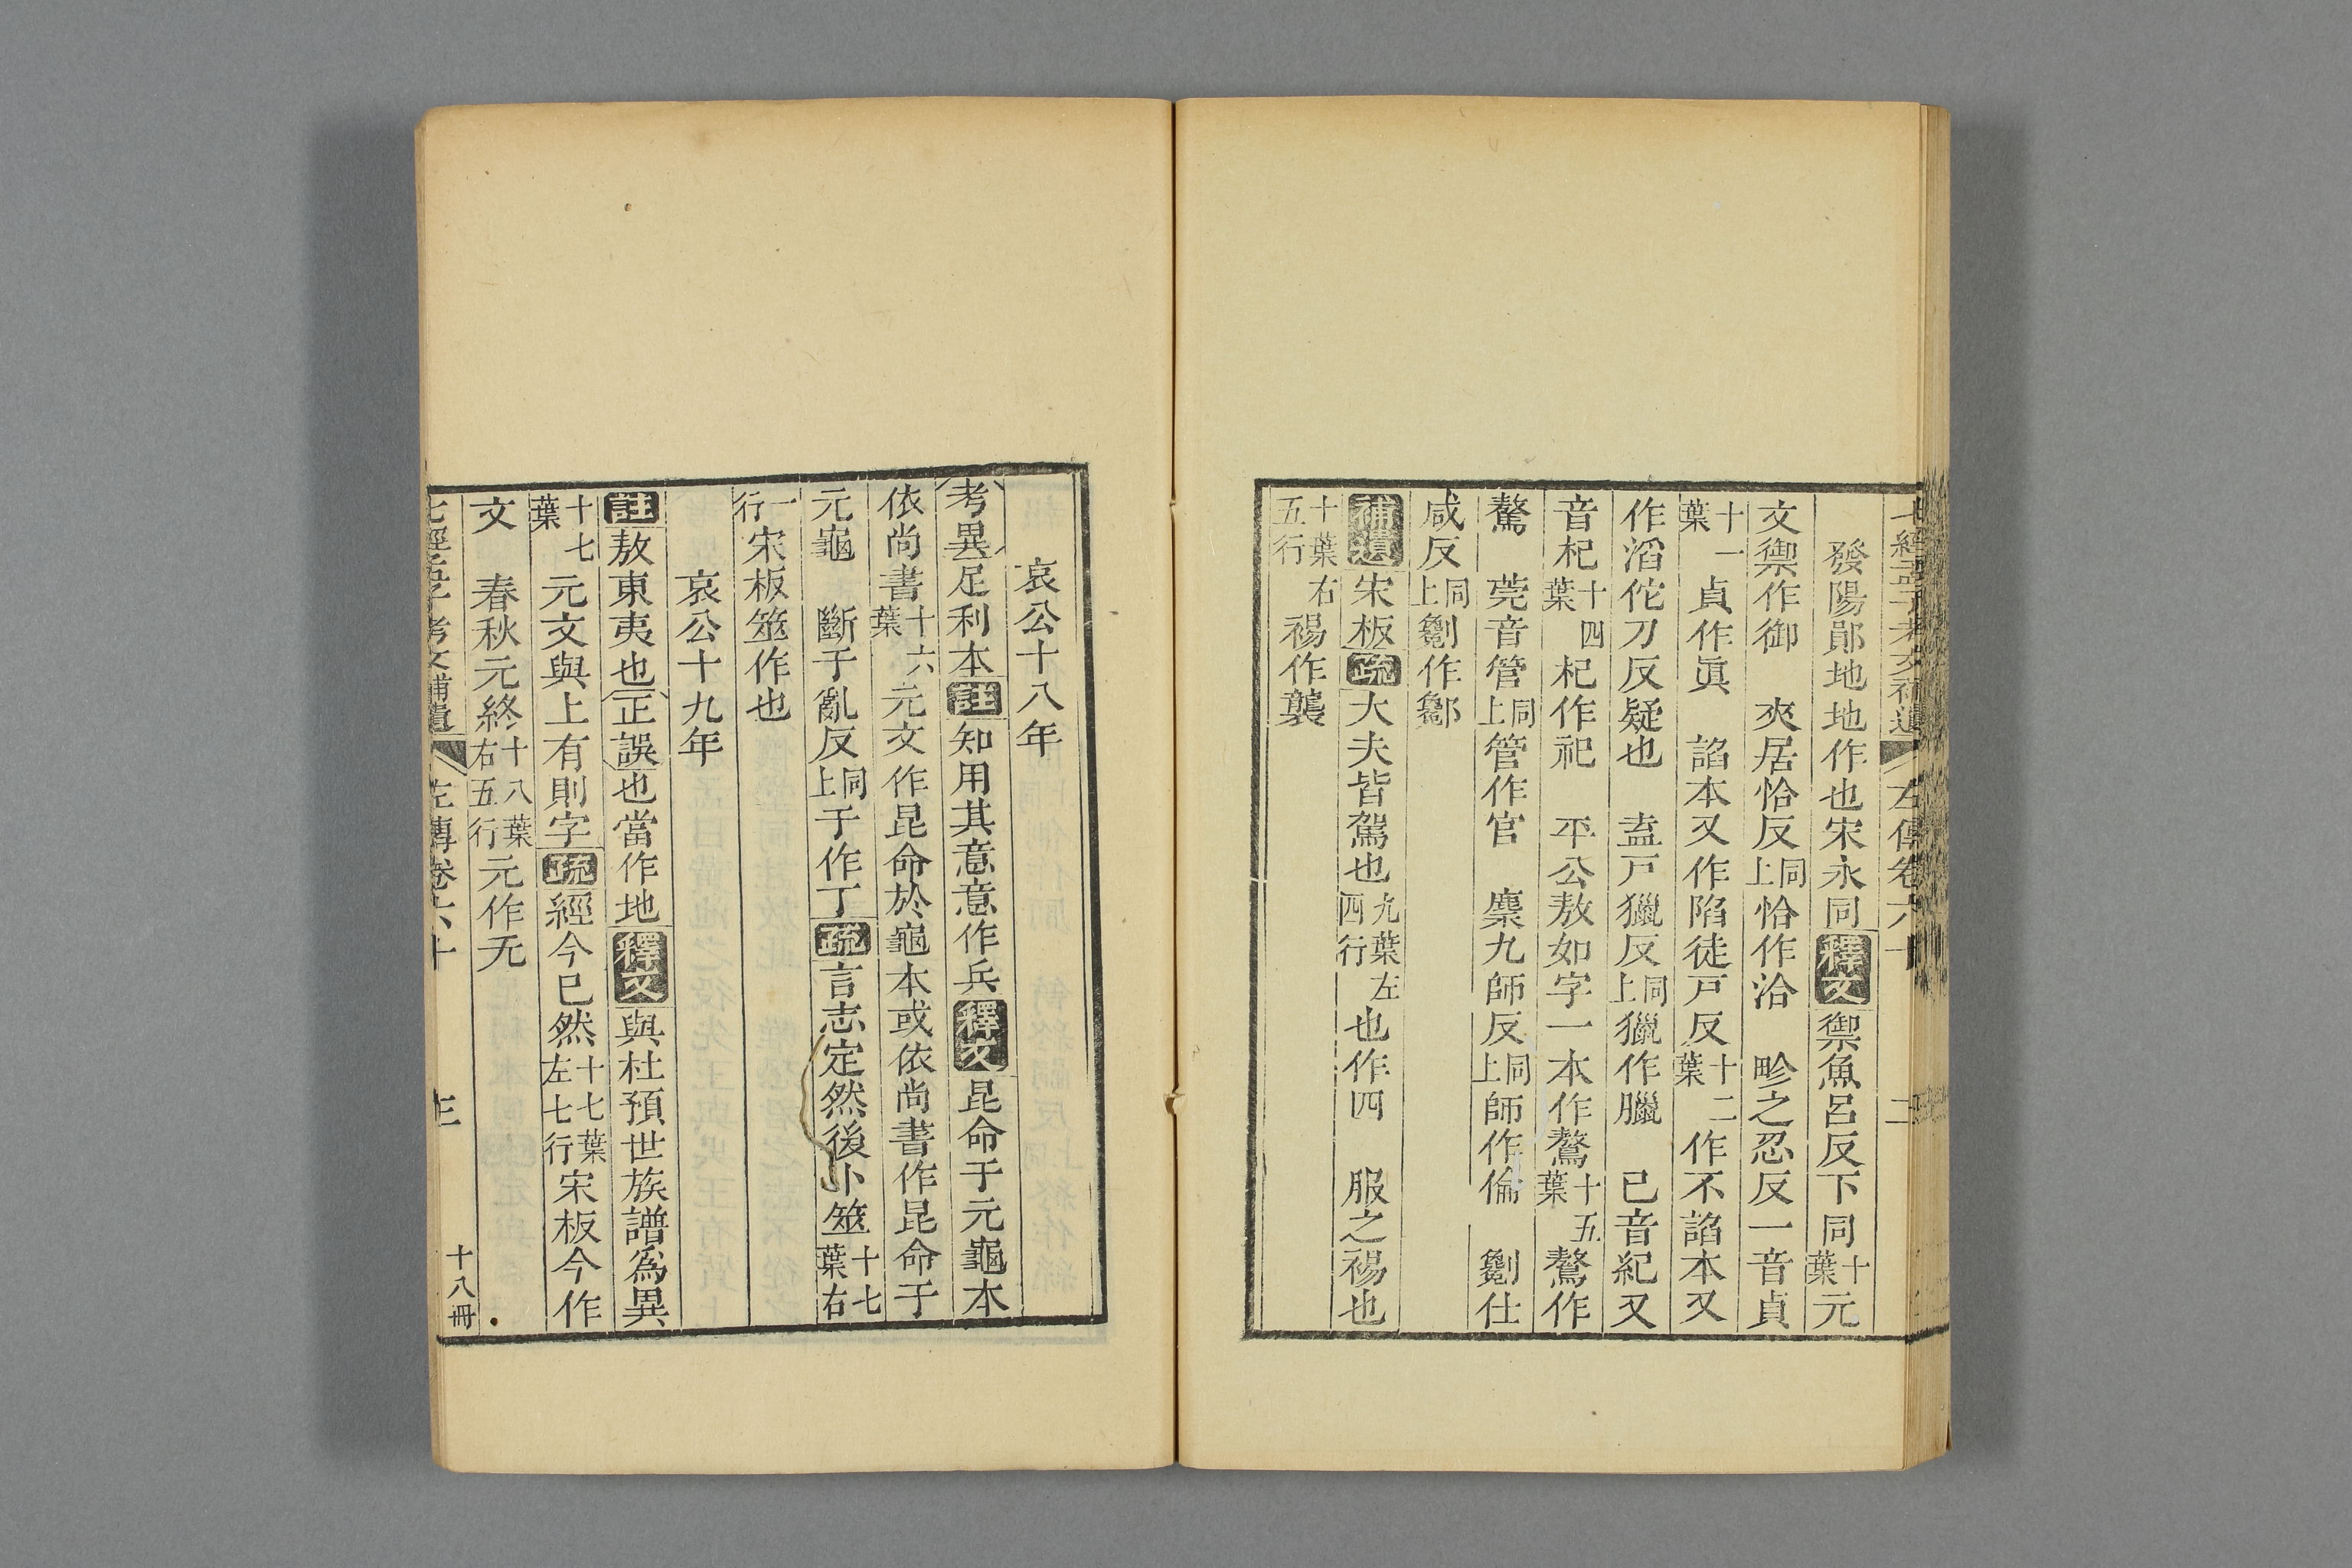 七經孟子考文補遺 左傳卷六十 二
發陽鄖地地作也宋永同釋文禦魚呂反下同十葉元
文禦作御 夾居恰反同上恰作洽 畛之忍反一音貞
十一葉貞作眞 諂本又作陷徒戸反十二葉作不諂本又
作滔佗刀反疑也 盍戸獵反同上獵作臘 已音紀又
音杞十四葉杞作祀 平公敖如字一本作驁十五葉驁作
驁 莞音管同上管作官 麇九師反同上師作倫 劖仕
咸反同上劖作酁
補遺宋板疏大夫皆駕也九葉左四行也作四 服之裼也
十葉右五行裼作襲
哀公十八年
考異足利本註知用其意意作兵釋文昆命于元龜本
依尚書十六葉元文作昆命於龜本或依尚書作昆命于
元龜 斷于亂反同上于作丁疏言志定然後卜筮十七葉右
一行宋板筮作也
哀公十九年
註敖東夷也正誤也當作地釋文與杜預世族譜爲異
十七葉元文與上有則字疏經今已然十七葉左七行宋板今作
文 春秋元終十八葉右五行元作无
七經孟子考文補遺 左傳卷六十 三 十八冊